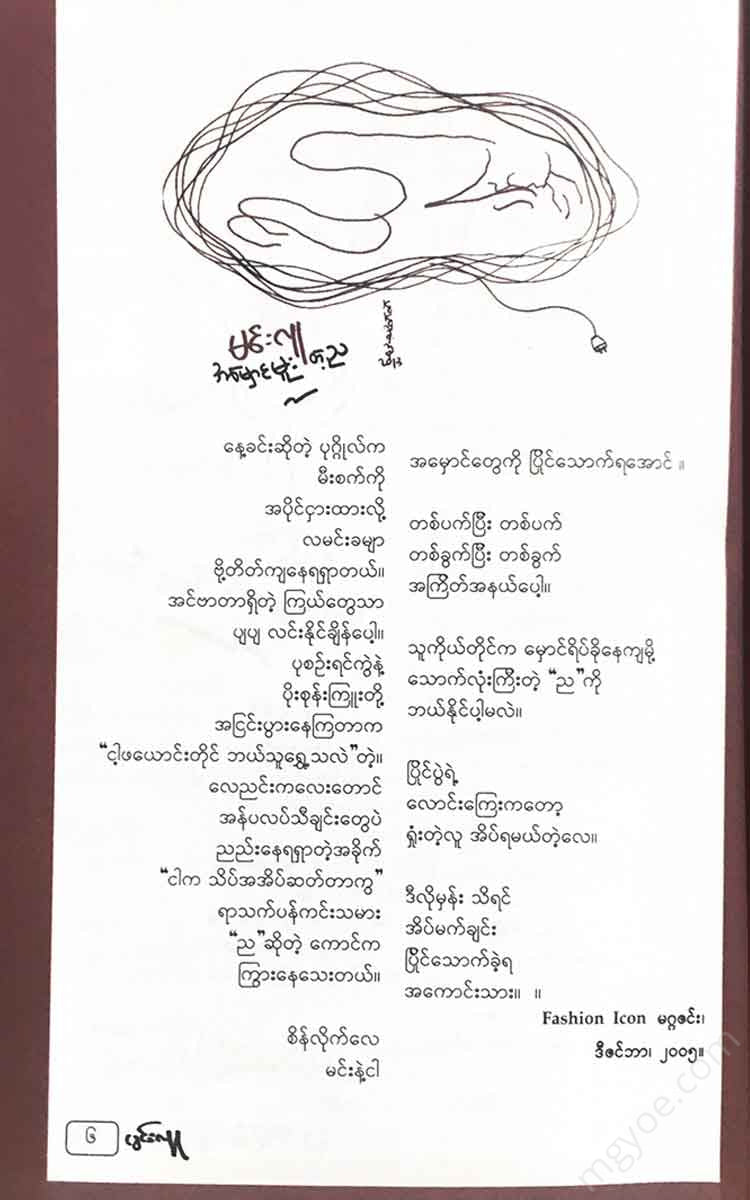 မင်းလူ
အိပ်မှာမဟုန်းတဲ့ည
နေ့ခင်းဆိုတဲ့ ပုဂ္ဂိုလ်က
မီးစက်ကို
အပိုင်ငှားထားလို့
လမင်းခမျာ
ဗို့တိတ်ကျနေရရှာတယ်။
အင်ဗာတာရှိတဲ့ ကြယ်တွေသာ
ပျပျ လင်းနိုင်ချိန်ပေါ့။
ပုစဉ်းရင်ကွဲနဲ့
ပိုးစုန်းကြူးတို့
အငြင်းပွားနေကြတာက
“ငါ့ဖယောင်းတိုင် ဘယ်သူရွှေ့သလဲ”တဲ့။
လေညင်းကလေးတောင်
အန်ပလပ်သီချင်းတွေပဲ
ညည်းနေရရှာတဲ့အခိုက်
“ငါက သိပ်အအိပ်ဆတ်တာကွ”
ရာသက်ပန်ကင်းသမား
“ည”ဆိုတဲ့ ကောင်က
ကြွားနေသေးတယ်။
စိန်လိုက်လေ
မင်းနဲ့ငါ
အမှောင်တွေကို ပြိုင်သောက်ရအောင် ။
တစ်ပက်ပြီး တစ်ပက်
တစ်ခွက်ပြီး တစ်ခွက်
အကြိတ်အနယ်ပေါ့။
သူကိုယ်တိုင်က မှောင်ရိပ်ခိုနေကျမို့
သောက်လုံးကြီးတဲ့ “ည”ကို
ဘယ်နိုင်ပါ့မလဲ။
ပြိုင်ပွဲရဲ့
လောင်းကြေးကတော့
ရှုံးတဲ့လူ အိပ်ရမယ်တဲ့လေ။
ဒီလိုမှန်း သိရင်
အိပ်မက်ချင်း
ပြိုင်သောက်ခဲ့ရ
အကောင်းသား။ ။
Fashion Icon မဂ္ဂဇင်း၊
ဒီဇင်ဘာ၊ ၂၀၀၅။
၆ မင်းလူ
mgyoe.com